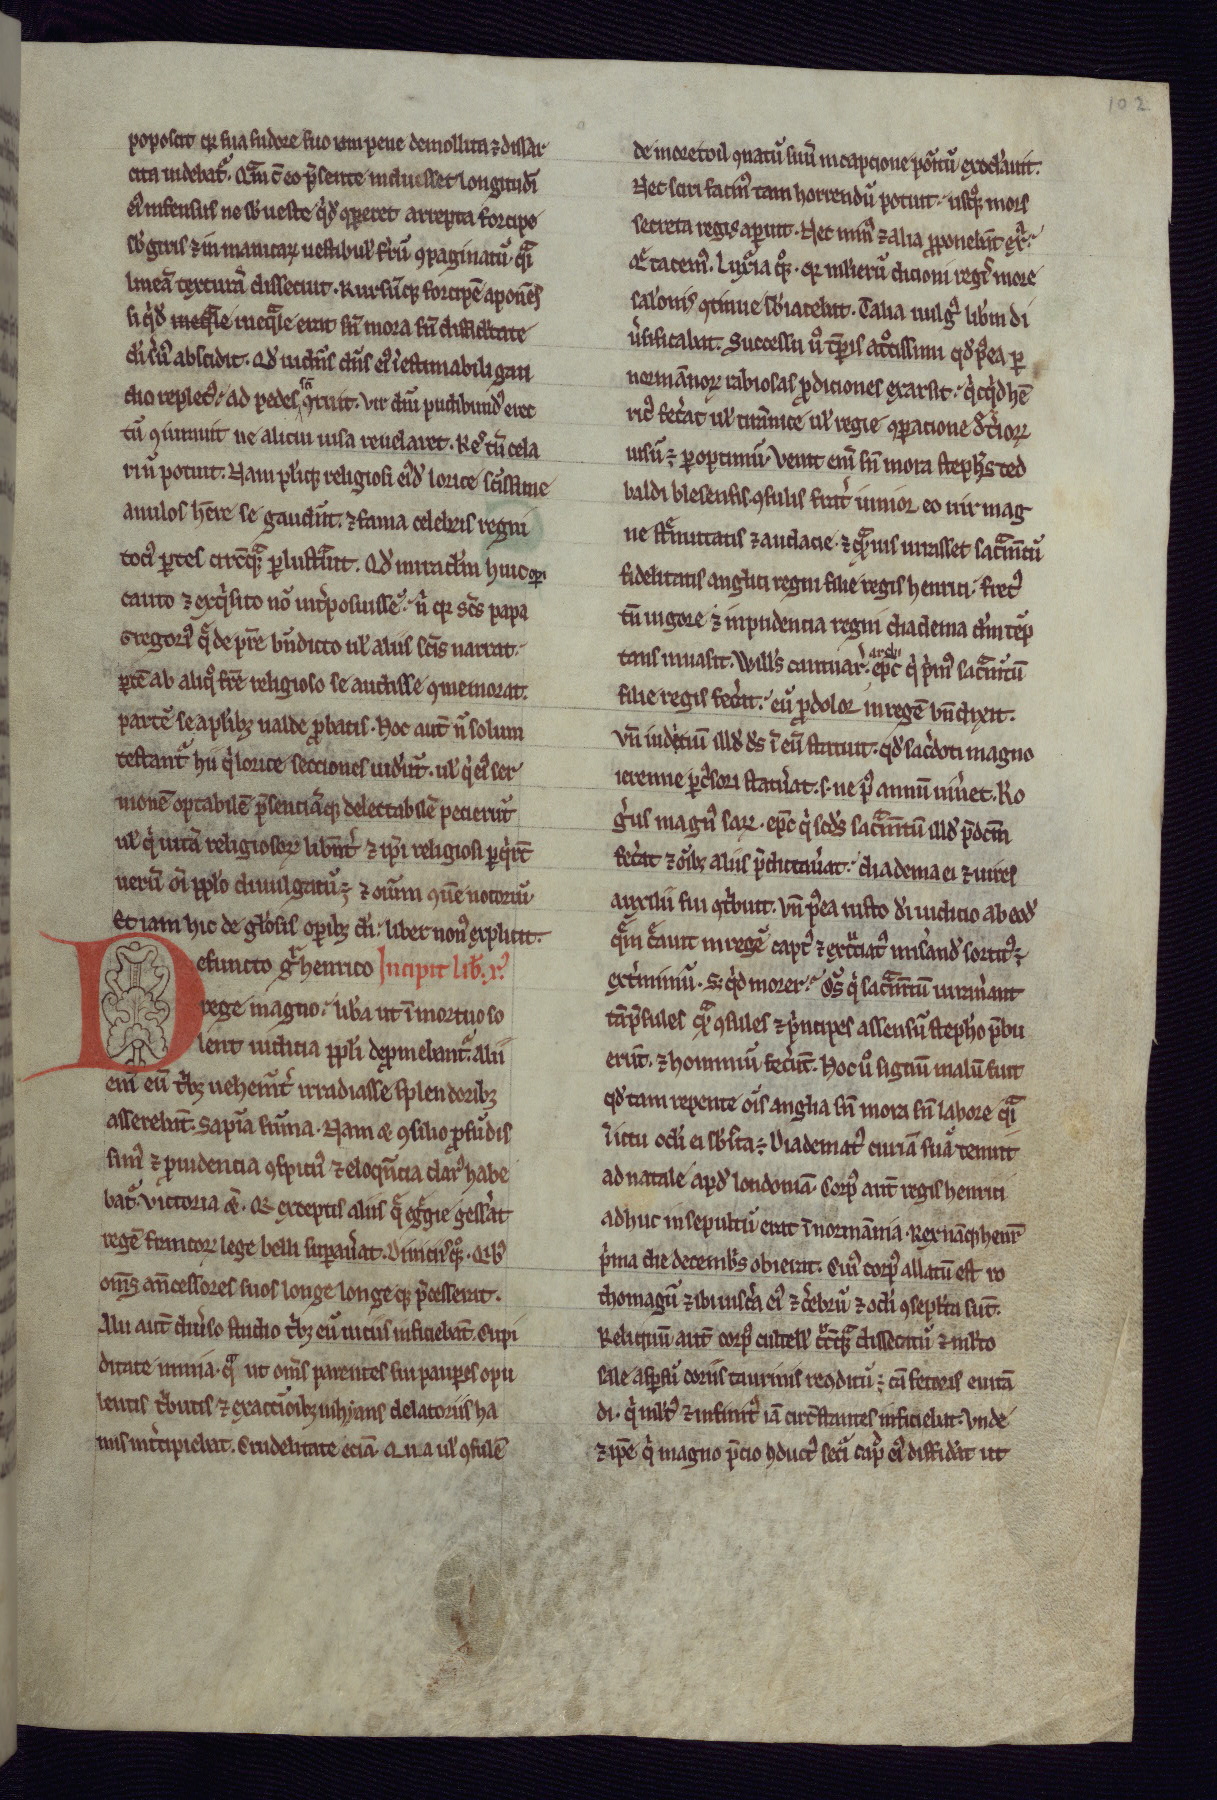 102
poposcit qr sua sudore suo iam pene demollita ⁊ dissar
cita uidebat᷑. Qm̅ c̅ eo p̅sente induesset longitudi̅
ei᷒ infensus ne sb̅ ueste q̇d opperet arrepta forcipe
sb̅ giris ⁊ in manicaꝝ uestibul᷒ ferru̅ ꝯpaginatu̅. qͣi
linea̅ textura̅ dissecuit. Rursu̅q; forcipe̅ apone̅s
si q̇d ineqͣle erat sn̅ mora sn̅ difficl̅tate
abscidit. Qd̅ uidens dn̅s ei᷒ i̅estimabili gau
dio replet᷒ ad pedes. Vir dn̅i pudibund᷒ erec
tu̅ ꝯiurauit ne alicui uisa reuelaret. Res tn̅ cela
ri n̅ potuit. Nam pl̅iq; religiosi ei᷒d lorice sc̅issime
anulos he̅re se gaudent. ⁊ fama celebris regni
toci᷒ partes circu̅q;qͣ p̲lustrauit. Qd̅ miracl̅m huic op̲i
cauto ⁊ exq̇sito no̅ int̲posuisse. n̅ qr sc̅s papa
Gregori᷒ q̅ de p̅re bn̅dicto ul᷒ aliis sc̅is narrat.
parte̅ ab aliq̊ fr̅e religioso se audisse ꝯmemorat.
parte̅ se a plib; ualde ꝓbatis. Hoc aut̅ n̅ solum
testant᷑ hii q̇ lorice secciones uider̅t. ul᷒ q̇ ei᷒ ser
mone̅ optabile̅ p̅sentia̅q; delectabile̅ pecieru̅t
ul᷒ q̇ uita̅ religiosoꝝ libent̅ ⁊ ip̅i religiosi p̲q̇ru̅t
ueru̅ o̅i pp̅lo diuulgatu̅ ⁊ o̅ium ꝯue̅ notoriu̅.
Et iam hic de gl̅osis op̲ib; dei̅. liber non᷒ explicit.
Defuncto g͛ henrico Incipit lib̅. x᷒
rege magno. lib̅a ut i̅ mortuo so
lent iudicia pp̅li depmebant᷑. Alii
eni̅ eu̅ t̅b; uehem̅t᷒ irradiasse splendorib;
asserebant̅. Sapie̅tia su̅ma. Nam ⁊ ꝯsilio ꝓfu̅dis
sim᷒ ⁊ ꝓuidencia ꝯspicu᷒ ⁊ eloque̅cia clar᷒ habe
bat᷑. Victoria ecia̅. Qr exceptis aliis q̅ egregie gesserat
rege̅ francoꝝ lege belli sup̲auerat. Diuiciisq;. Quib᷒
om̅s an̅cessores suos longe longeq; p̅cesserit.
Alii aut̅ diuerso studio t̅b; eu̅ uiciis inficiebant̅. Cupi
ditate nimia. qͣ ut om̅s parentes sui paup̲es opu
lentis tributis ⁊ exaccio̅ib; inhians delatoriis ha
mis int̲cipiebat. Crudelitate ecia̅. Qua ul᷒ ꝯsule̅
de moretoil ꝯnatu̅ suu̅ in capcione positu̅ exoclauit.
Nec sciri facin᷒ tam horrendu̅ potuit. usq; mors
secreta regis ap̲uit. Nec min᷒ ⁊ alia ꝓponebant exe̅pla
q̅ tacem᷒. Luxuria q̊q;. qr mulieru̅ dicioni regis more
salo̅onis ꝯtinue sb̅iacebat. Talia uulg᷒ libm̅ di
uersificabat. Successu u̅o te̅p̲is at̊cissimi qd̅ p̊ea p̲
norma̅noꝝ rabiosas ꝓdiciones exarsit. q̇cq̇d he̅
ric᷒ fecerat ul᷒ tira̅nice ul᷒ regie ꝯparacione det̲ioꝝ
uisu̅ ÷ p̲optimu̅. Venit eni̅ sn̅ mora steph̅s ted
baldi blesensis ꝯsulis frat̅ iunior eo uir mag
ne strenuitatis ⁊ audacie. ⁊ qͣuis iurasset sacm̅tu̅
fidelitatis anglici regni filie regis henrici. fret᷒
tn̅ uigore ⁊ inpudencia regni diadema dm̅ te̅p
tans inuasit. Willl̅s cantuar̅. archiep̅c q̇ p̅m᷒ sacm̅tu̅
filie regis fecerit. eu̅ ꝓdolor in rege̅ bn̅dixit.
Vn̅ iudiciu̅ illd̅ ds̅ i̅ eu̅ statuit. qd̅ sac̅doti magno
ieremie p̲c̅sori statuerat. s. ne p᷒ annu̅ uiueret. Ro
gerus magn᷒ sar̅. ep̅c q̇ sc̅ds sacm̅tu̅ illd̅ p̅dcm̅
fecerat ⁊ o̅ib; aliis p̅dictauerat. diadema ei ⁊ uires
auxilii sui ꝯtribuit. Vn̅ p̊ea iusto dei̅ iudicio ab eod̅
que̅m c̅auit in rege̅ capt᷒ ⁊ exc̅ciat᷒ miserand̅ sortit᷒ ÷
ext̲miniu̅. S; q̇d morer. Om̅s q̇ sacm̅tu̅ iurauerant
ta̅ p̅sules qͣ ꝯsules ⁊ p̅ncipes assensu̅ steph̅o p̅bu
eru̅t. ⁊ hominiu̅ fecer̅t. Hoc u̅o signu̅ malu̅ fuit
qd̅ tam repente o̅is anglia sn̅ mora sn̅ labore qͣi
i̅ ictu oculi ei sb̅iecta ÷. Diademat᷒ curia̅ sua̅ tenuit
ad natale apd̅ londonia̅. Corp᷒ aut̅ regis henrici
adhuc insepultu̅ erat i̅ norma̅nia. Rex na̅q; henr̅
p̅ma die decembris obierat. Cui᷒ corp᷒ allatu̅ est ro
thomagu̅ ⁊ ibi uiscera ei᷒ ⁊ cerebru̅ ⁊ oculi ꝯsepulta su̅t.
Reliquu̅ aut̅ corp᷒ cultell᷒ circu̅q;qͣ dissecatu̅ ⁊ multo
sale asp̲su̅ coriis taurinis reconditu̅ ÷ ca̅ fetoris euita̅
di. q̇ mult᷒ ⁊ infinit᷒ ia̅ circu̅stantes inficiebat. Vnde
⁊ ip̅e q̇ magno p̅cio ꝯduct᷒ securi cap᷒ ei᷒ diffiderat ut